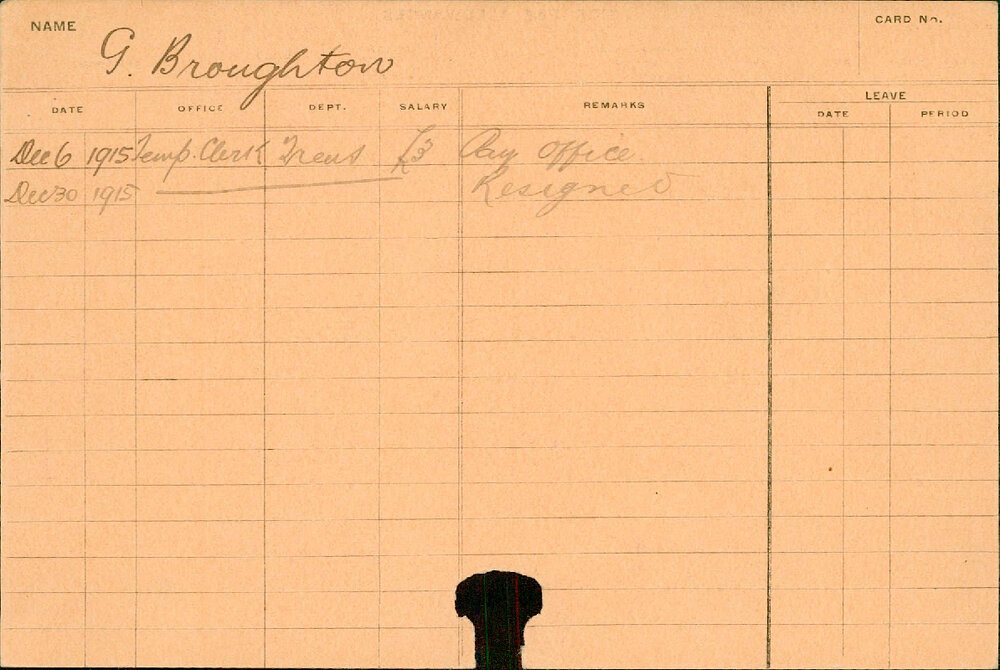 NAME G. Broughton CARD No.
DATE OFFICE DEPT. SALARY REMARKS LEAVE
DATE PERIOD
Dec 6 1915 Temp. Clerk Treas £3 Pay Office.
Dec 30 1915 Resigned